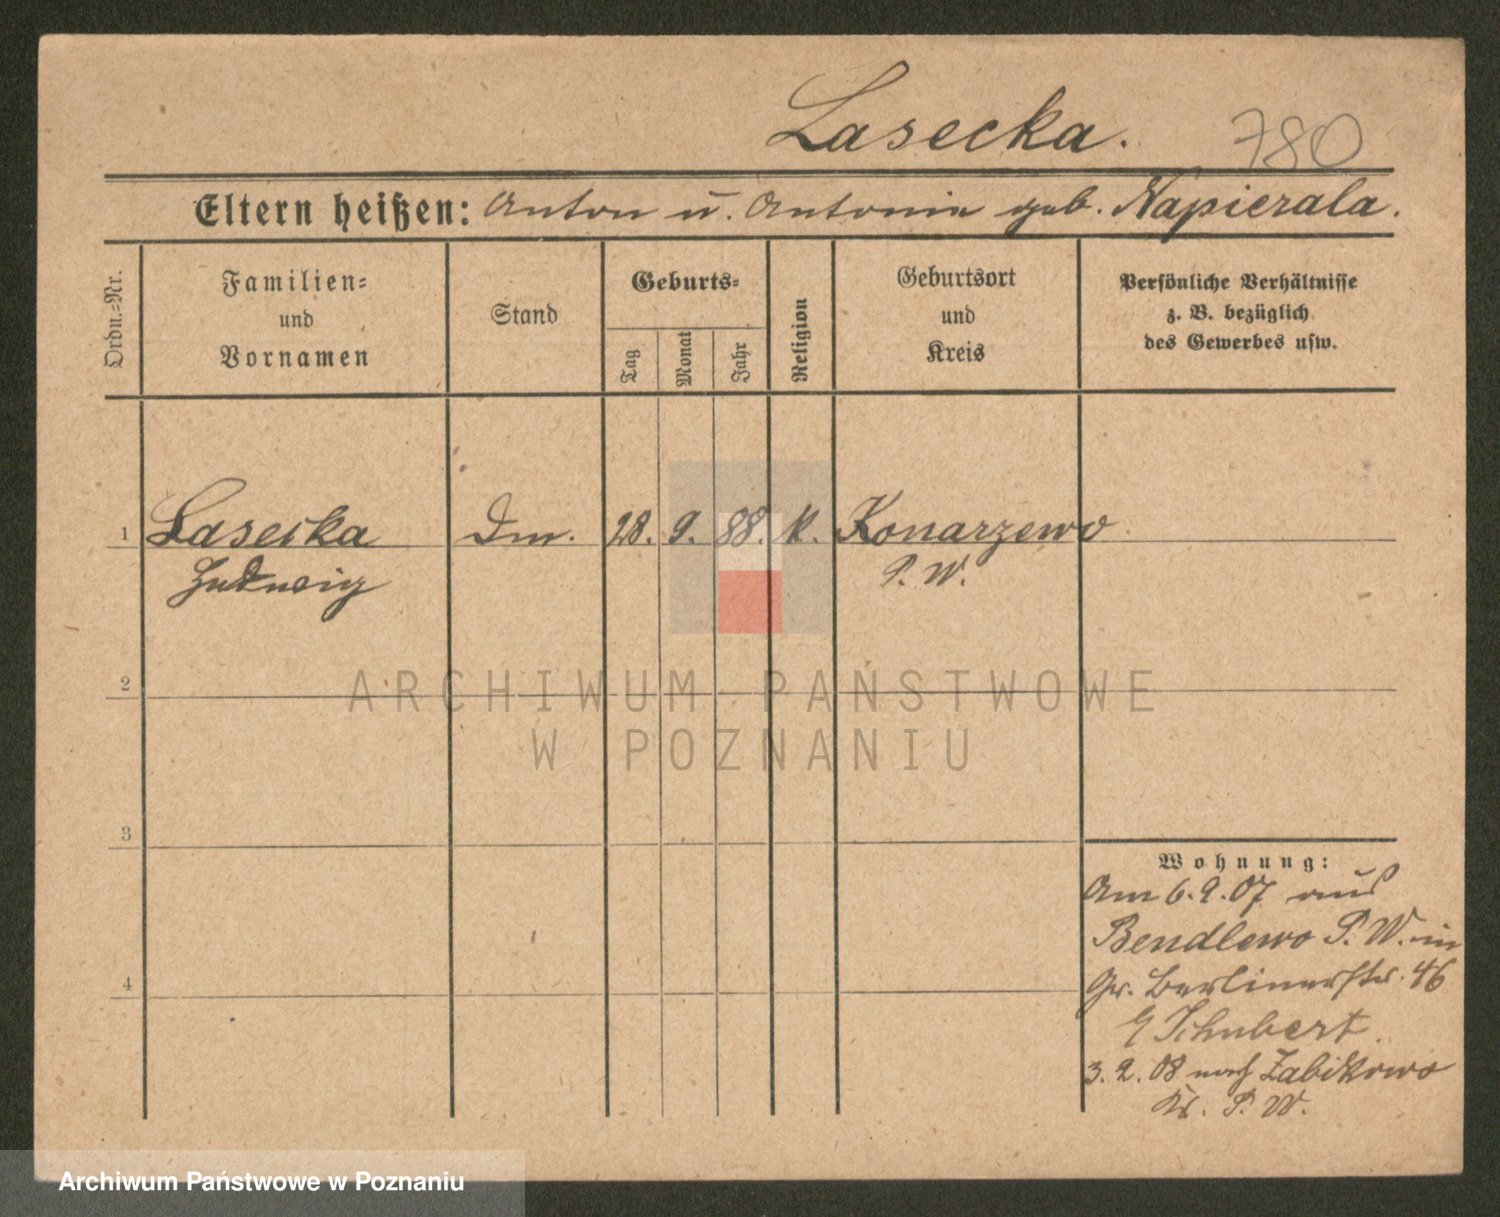 Lasecka.
780
Eltern heißen: Anton u. Antonie geb. Napierala.
Ordn.=Nr.
Familien=
und
Vornamen
Stand
Geburts=
Tag
Monat
Jahr
Religion
Geburtsort
und
Kreis
Persönliche Verhältnisse
z. B. bezüglich
des Gewerbes usw.
1 Lasecka Dm. 28. 9. 88. K. Konarzewo
Hedwig P. W.
2
3
4
Wohnung:
Am 6.9.07 aus
Bendlewo P. W. in
Gr. Berlinerstr. 46
Schubert.
3. 2. 08 nach Zabikowo
Kr. P. W.
ARCHIWUM PAŃSTWOWE
W POZNANIU
Archiwum Państwowe w Poznaniu